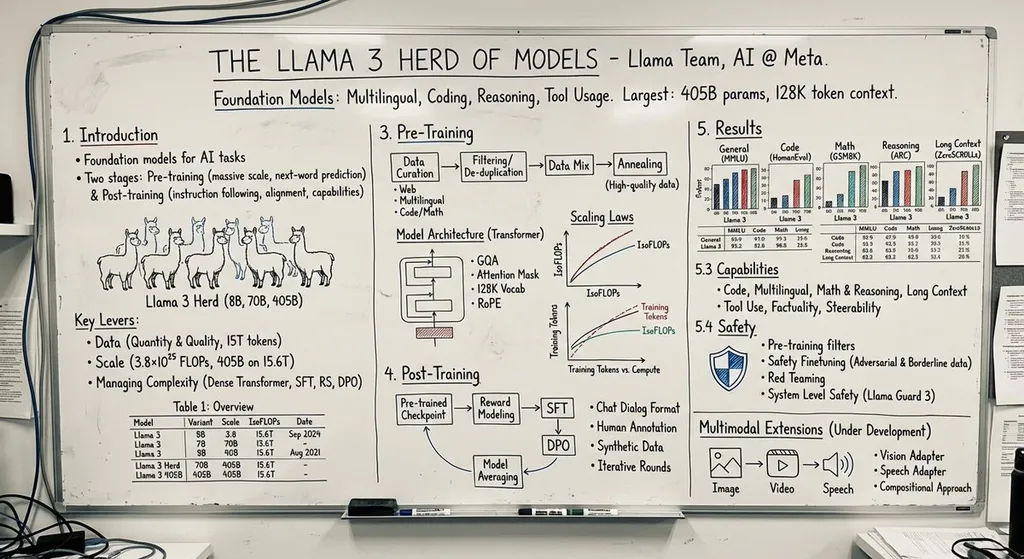 THE LLAMA 3 HERD OF MODELS – Llama Team, AI @ Meta.
Foundation Models: Multilingual, Coding, Reasoning, Tool Usage. Largest: 405B params, 128K token context.
1. Introduction
• Foundation models for AI tasks
• Two stages: Pre-training (massive scale, next-word prediction)
& Post-training (instruction following, alignment, capabilities)
Llama 3 Herd (8B, 70B, 405B)
Key Levers:
• Data (Quantity & Quality, 15T tokens)
• Scale (3.8×10²⁵ FLOPs, 405B on 15.6T)
• Managing Complexity (Dense Transformer, SFT, RS, DPO)
Table 1: Overview
Model Variant Scale IsoFLOPs Date
Llama 3 3.8 15.6T Sep 2024
Llama 3 7B 70B -
Llama 3 8B 15.6T Aug 2021
Llama 3 Herd 70B 405B 15.6T -
Llama 3 405B 405B 15.6T -
3. Pre-Training
Data Curation
Filtering/ De-duplication
Data Mix
Annealing
(High-quality data)
• Web
• Multilingual
• Code/Math
Model Architecture (Transformer)
• GQA
• Attention Mask
• 128K Vocab
• RoPE
Scaling Laws
IsoFLOPs
IsoFLOPs
IsoFLOPs
Training Tokens
Training Tokens
IsoFLOPs
Training Tokens vs. Compute
4. Post-Training
Pre-trained Checkpoint
Reward Modeling
SFT
DPO
Model Averaging
• Chat Dialog Format
• Human Annotation
• Synthetic Data
• Iterative Rounds
5. Results
General (MMLU)
Code (HumanEval)
Math (GSM8K)
Reasoning (ARC)
Long Context (ZeroSCROLLs)
Llama 3
Llama 3
Llama 3
Llama 3
Llama 3
MMLU Code Math Long
General
Llama 3
MMLU Code Math Long ZeroSCROLLS
Code
Code
Reasoning
Long Context
5.3 Capabilities
• Code, Multilingual, Math & Reasoning, Long Context
• Tool Use, Factuality, Steerability
5.4 Safety
• Pre-training filters
• Safety Finetuning (Adversarial & Borderline data)
• Red Teaming
• System Level Safety (Llama Guard 3)
Multimodal Extensions (Under Development)
Image
Video
Speech
• Vision Adapter
• Speech Adapter
• Compositional Approach